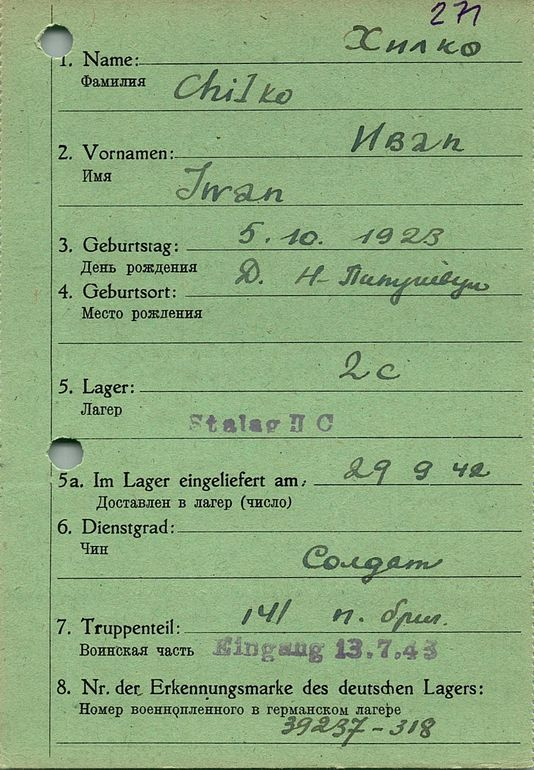 271
Хилко
1. Name:
Фамилия
Chilko
Иван
2. Vornamen:
Имя
Iwan
3. Geburtstag: 5. 10. 1923
День рождения
Д. Н-
4. Geburtsort:
Место рождения
2 c
5. Lager:
Лагер
Stalag II C
5a. Im Lager eingeliefert am: 29 9 42
Доставлен в лагер (число)
6. Dienstgrad:
Чин
Солдат
7. Truppenteil: 141 п. бриг.
Воинская часть Eingang 13.7.43
8. Nr. der Erkennungsmarke des deutschen Lagers:
Номер военнопленного в германском лагере
39237-318